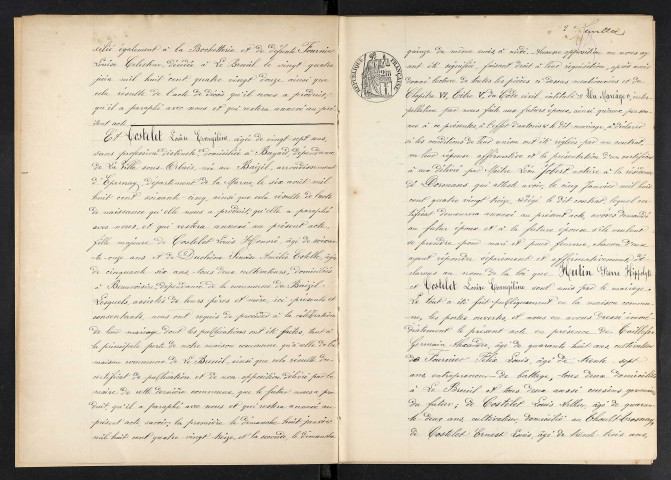 culée également à la Bochetterie et de défunte Fournier
Louise Célestine, décédée à Le Breuil le vingt quatre
juin mil huit cent quatre vingt douze ainsi que
cela résulte de l'acte de décès qu'il nous a produit,
qu'il a paraphé avec nous et qui restera annexé au pré-
sent acte
Et Costelet Louise Evangéline, âgée de vingt sept ans,
sans profession domiciliée à Bayard, dépendance
de La Ville sous Orbais, née au Baizil, arrondissement
d'Epernay, département de la Marne, le six août mil
huit cent soixante cinq, ainsi que cela résulte de l'acte
de naissance qu'elle nous a produit, qu'elle a paraphé
avec nous, et qui restera annexé au présent acte,
fille majeure de Costelet Louis Honoré, âgé de soixan-
te onze ans et de Duchêne Louise Amélie Estelle, âgée
de cinquante six ans, tous deux cultivateurs, domiciliés
à Beauvoisin, dépendance de la commune du Baizil
Lesquels, assistés de leurs pères et mère, ici présents et
consentants, nous ont requis de procéder à la célébration
de leur mariage dont les publications ont été faites, tant à
la principale porte de notre maison commune, qu'à celle de la
maison commune de Le Breuil, ainsi que cela résulte du
certificat de publication et de non opposition délivré par le
maire de cette dernière commune, que le futur nous a pro-
duit, qu'il a paraphé avec nous et qui restera annexé au
présent acte savoir, la première le dimanche huit janvier
mil huit cent quatre vingt treize, et la seconde, le dimanche
2e Feuillet
RÉPUBLIQUE FRANÇAISE
quinze du même mois à midi. Aucune opposition ne nous ay-
ant été signifiée, faisant droit à leur réquisition, après avoir
donné lecture de toutes les pièces ci-dessus mentionnées et du
Chapitre VI, Titre V, du Code civil, intitulé : Du Mariage, inter-
pellation par nous faite aux futurs époux, ainsi qu'aux person-
nes ici présentes, à l'effet d'autoriser le dit mariage, à déclarer
si les conditions de leur union ont été réglées par un contrat,
sur leur réponse affirmative et la présentation d'un certificat
à eux délivré par Maître Léon Jobert, notaire à la résidence
de Dormans qui atteste avoir, le cinq janvier mil huit
cent quatre vingt treize, rédigé le dit contrat, lequel cer-
tificat demeurera annexé au présent acte, avons demandé
au futur époux et à la future épouse s'ils veulent
se prendre pour mari et pour femme, chacun d'eux
ayant répondu séparément et affirmativement, dé-
clarons au nom de la loi que Hutin Pierre Hippolyte
et Costelet Louise Evangéline sont unis par le mariage.
Le tout a été fait publiquement en la maison commu-
ne, les portes ouvertes et nous en avons dressé immé-
diatement le présent acte en présence de
Germain Alexandre, âgé de quarante huit ans, cultivateur
de Fournier Félix Louis, âgé de trente sept
ans, entrepreneur de battage, tous deux domiciliés
à Le Breuil et tous deux aussi cousins germains
du futur ; de Costelet Louis Arthur, âgé de quaran-
te deux ans, cultivateur, domicilié au Thoult-Trosnay,
de Costelet Ernest Louis, âgé de trente trois ans,